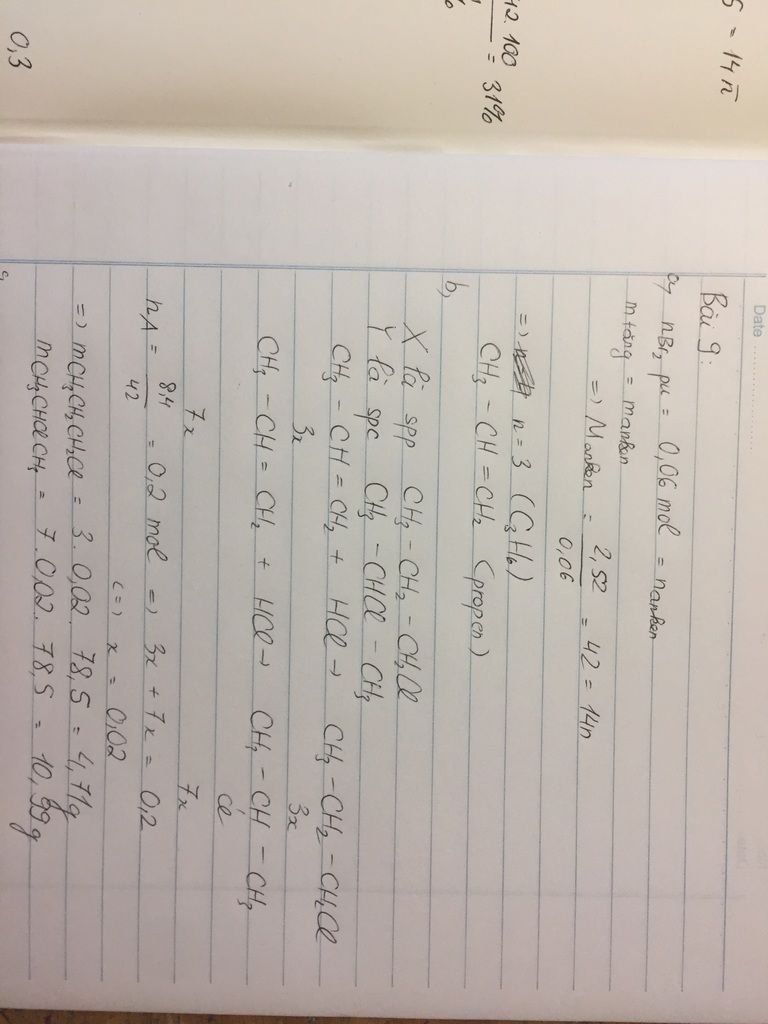 5 = 14n̄
12.100 = 31%
0,3
Date
Bài 9:
a, nBr₂ pu = 0,06 mol = nanken
m tăng = manken
=> Manken = 2,52 / 0,06 = 42 = 14n
=> n = 3 (C₃H₆)
CH₃ - CH = CH₂ (propen)
b,
X là spp CH₃ - CH₂ - CH₂Cl
Y là spc CH₃ - CHCl - CH₃
CH₃ - CH = CH₂ + HCl → CH₃ - CH₂ - CH₂Cl
3x 3x
CH₃ - CH = CH₂ + HCl → CH₃ - CH - CH₃
Cl
7x 7x
nA = 8,4 / 42 = 0,2 mol => 3x + 7x = 0,2
(=) x = 0,02
=> mCH₃CH₂CH₂Cl = 3. 0,02. 78,5 = 4,71g
mCH₃CHClCH₃ = 7. 0,02. 78,5 = 10,99g